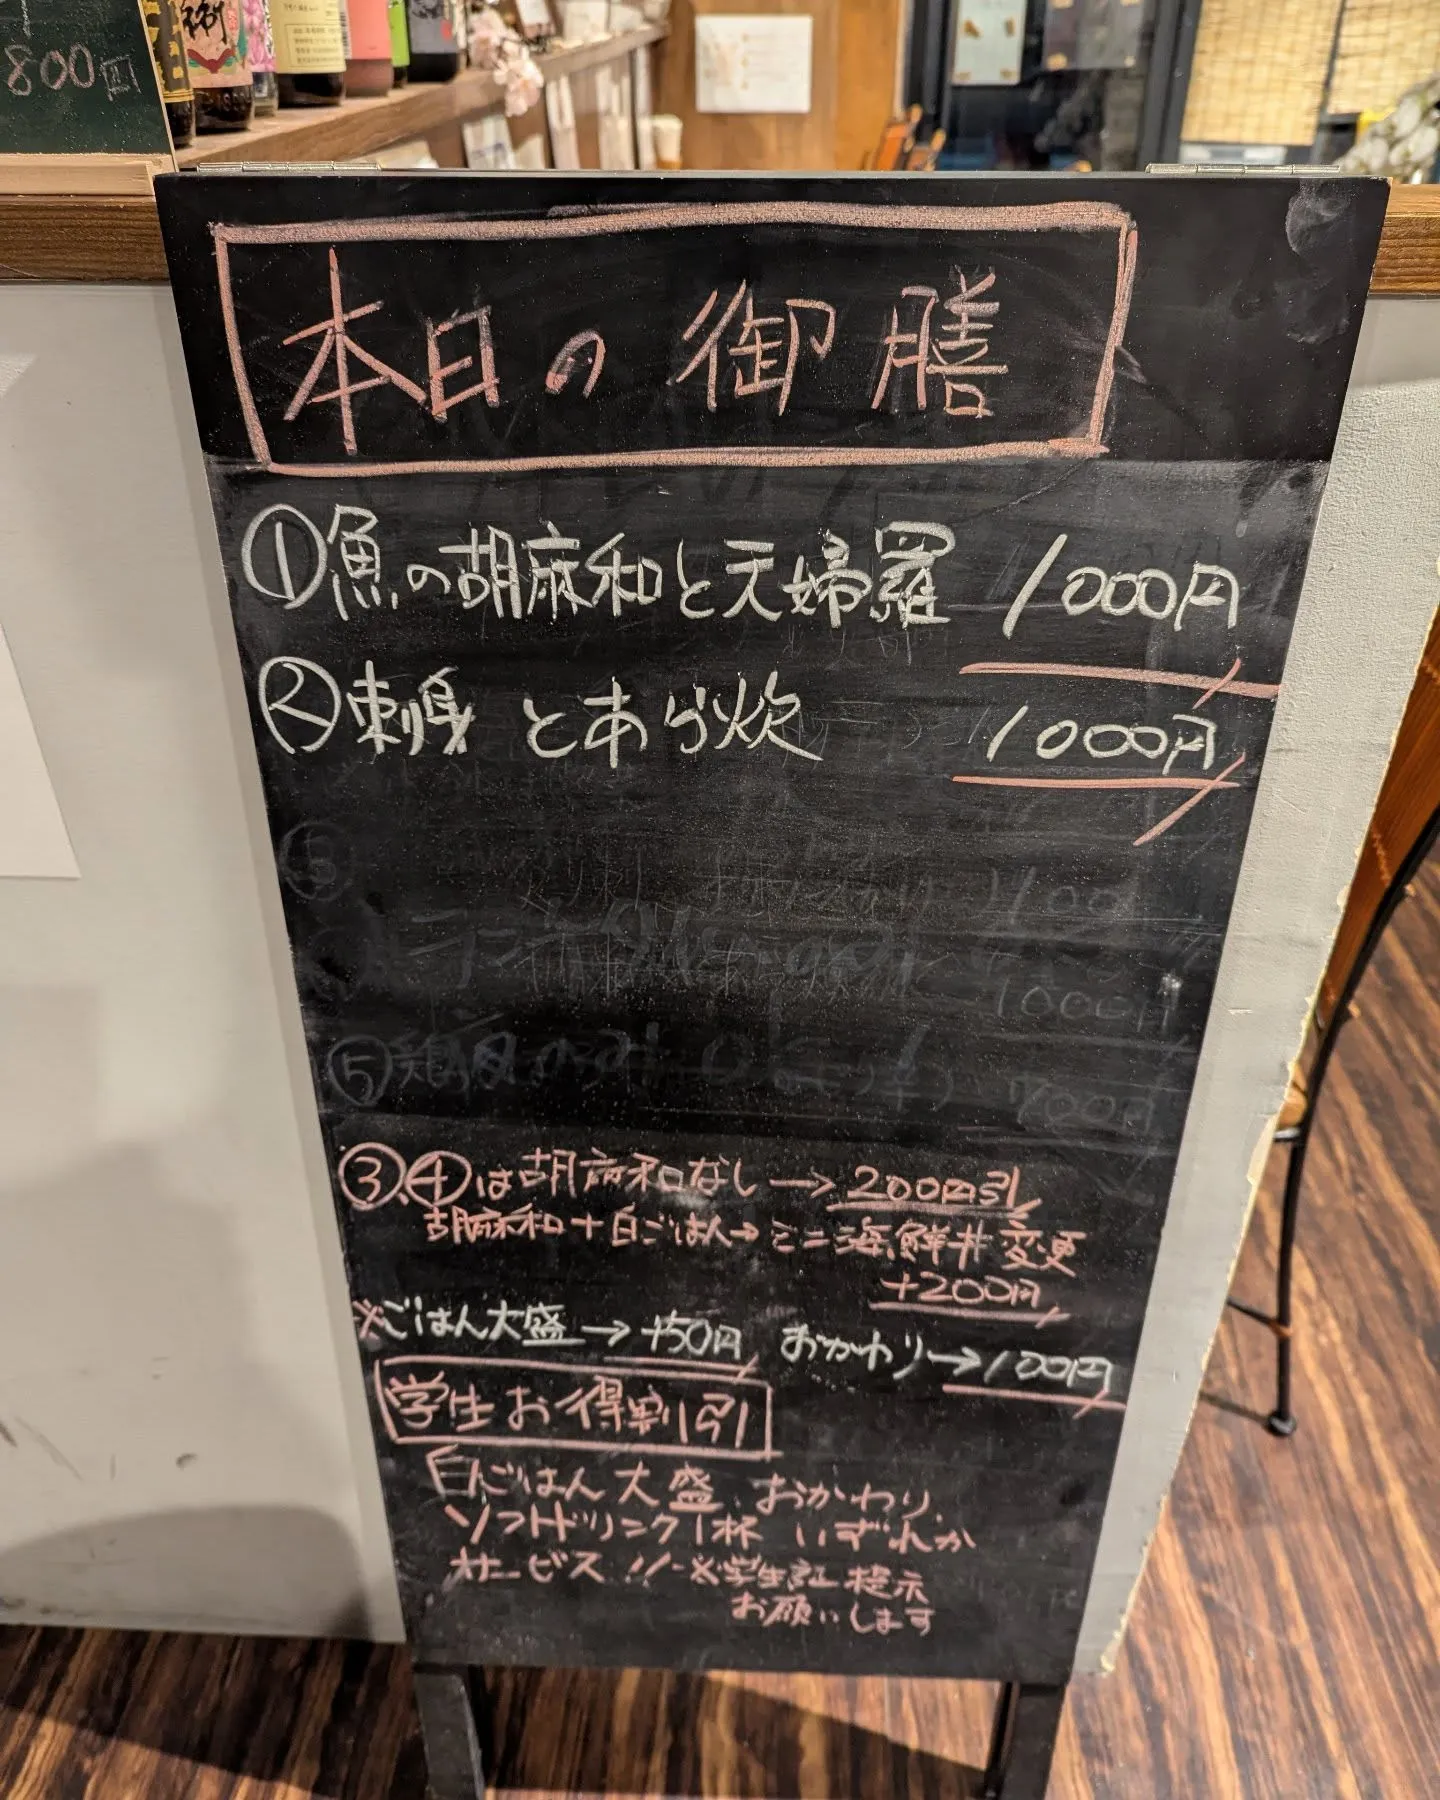 800円
本日の御膳
①魚の胡麻和と天婦羅 1000円
②刺身とあら炊 1000円
1000円
⑤
700円
③、④は胡麻和なし→200円引
胡麻和+白ごはん→ミニ海鮮丼変更
+200円
※ごはん大盛→+50円 おかわり→100円
学生お得割引
白ごはん大盛、おかわり、
ソフトドリンク1杯 いずれか
サービス!! ※学生証提示
お願いします